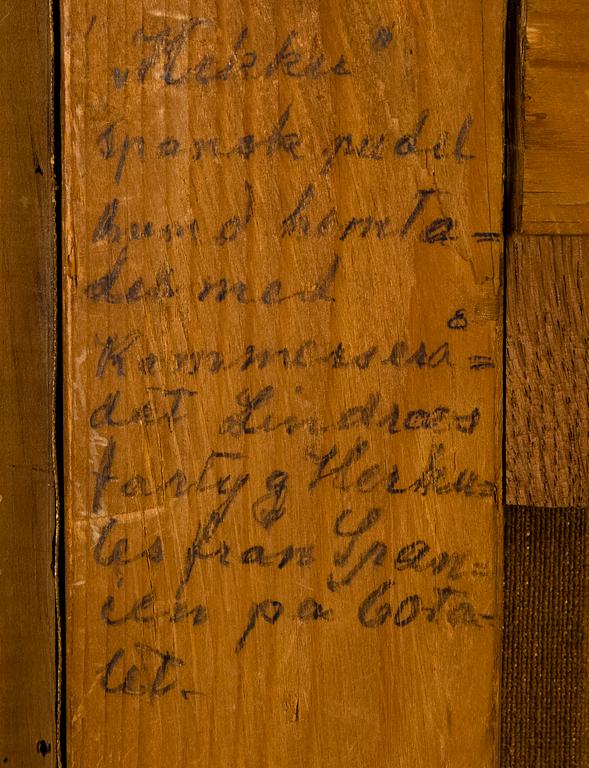 „Hekku”
spansk pudel
hund hämta=
des med
Kommerserå=
det Lindroos
fartyg Herku=
les från Span=
ien på 60ta-
let.